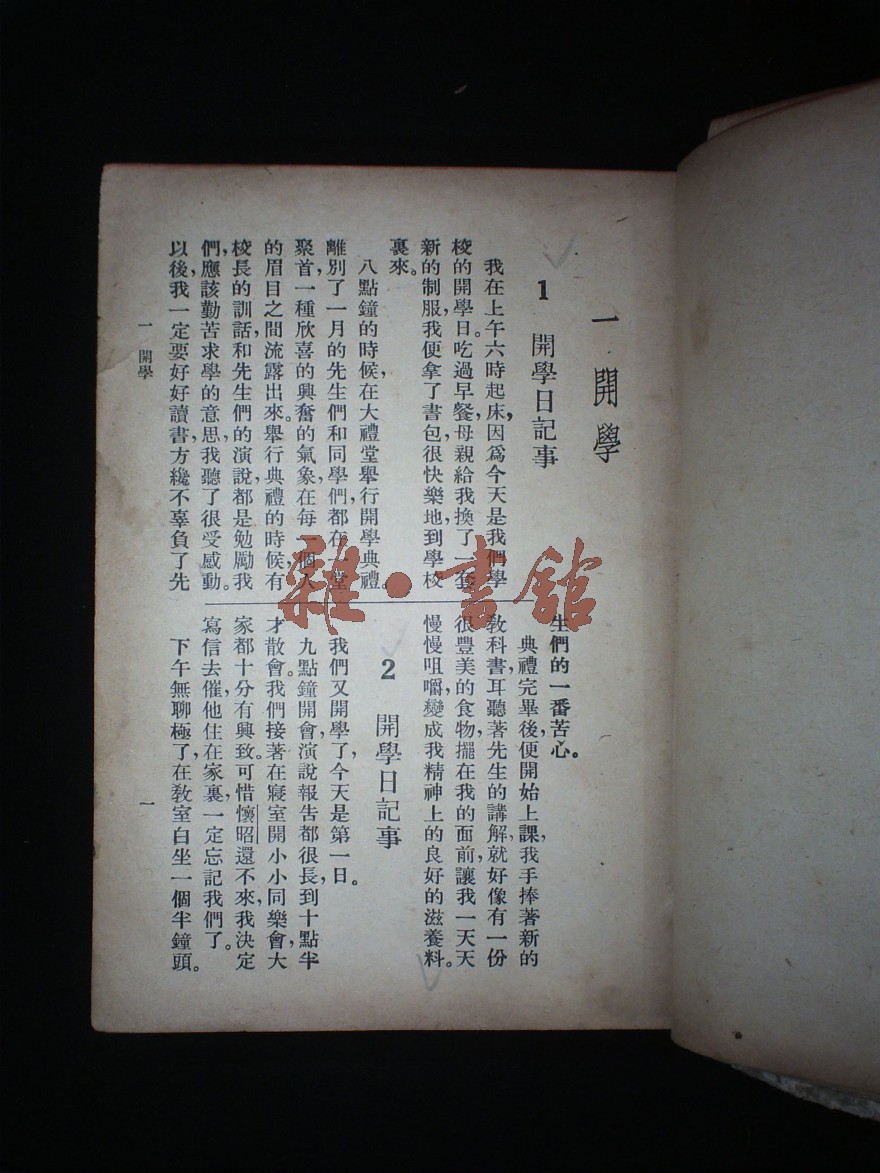 一 開學
1 開學日記事
我在上午六時起床，因爲今天是我們學
校的開學日。吃過早餐，母親給我換了一套
新的制服，我便拿了書包，很快樂地到學校
裏來。
八點鐘的時候，在大禮堂舉行開學典禮。
離別了一月的先生們和同學們，都在一堂
聚首，一種欣喜的興奮的氣象，在每一個人
的眉目之間流露出來。舉行典禮的時候，有
校長的訓話，和先生們的演說，都是勉勵我
們，應該勤苦求學的意思，我聽了很受感動。
以後，我一定要好好讀書，方纔不辜負了先
生們的一番苦心。
典禮完畢後，便開始上課，我手捧著新的
教科書，耳聽著先生的講解，就好像有一份
很豐美的食物，擺在我的面前，讓我一天天
慢慢咀嚼，變成我精神上的良好的滋養料。
2 開學日記事
我們又開學了，今天是第一日。
九點鐘開會，演說報告都很長，到十點半
才散會。我們接著在寢室開小小同樂會，大
家都十分有興致。可惜懷昭還不來，我決定
寫信去催他，住在家裏，一定忘記我們了。
下午無聊極了，在敎室白坐一個半鐘頭。
一 開學
一
雜·書館